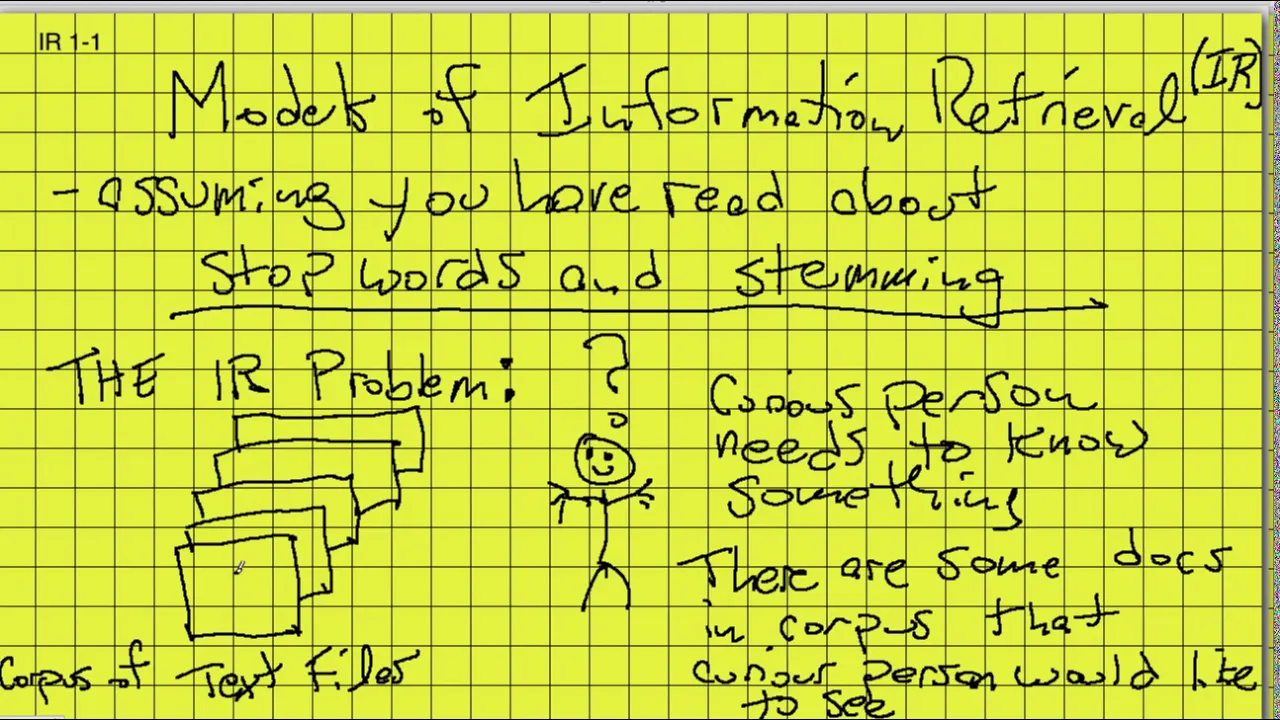 IR 1-1
Models of Information Retrieval (IR)
- assuming you have read about
stop words and stemming
THE IR Problem:
?
Curious person
needs to know
something
There are some docs
in corpus that
curious person would like
to see
Corpus of Text Files